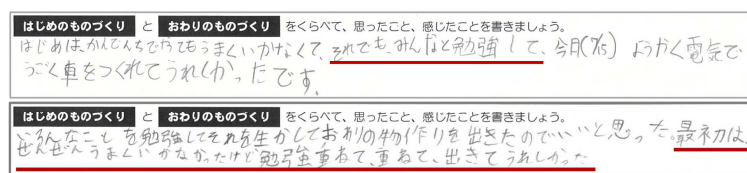 はじめのものづくり と おわりのものづくり をくらべて、思ったこと、感じたことを書きましょう。
はじめは、かんでんちでやってもうまくいかなくて、それでも、みんなと勉強して、今月(7/15) ようやく電気で
うごく車をつくれてうれしかったです。
はじめのものづくり と おわりのものづくり をくらべて、思ったこと、感じたことを書きましょう。
いろんなことを勉強してそれを生かしておわりの物作りを出きたのでいいと思った。最初は、
ぜんぜんうまくいかなかったけど勉強重ねて、重ねて、出きてうれしかった